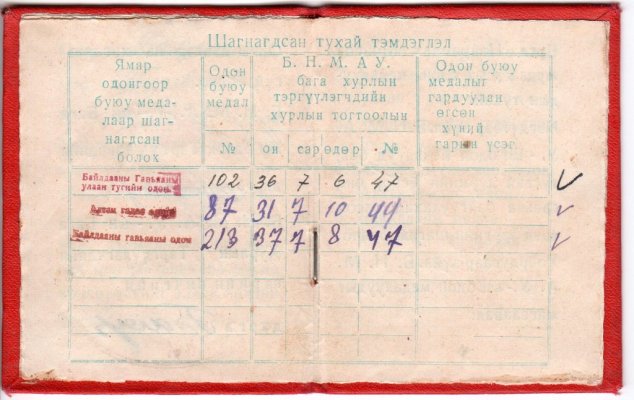 Шагнагдсан тухай тэмдэглэл
Ямар одонгоор буюу меда-лаар шаг-нагдсан болох
Одон буюу медал
Б. Н. М. А. У. бага хурлын тэргүүлэгчдийн хурлын тогтоолын
Одон буюу медалыг гардуулан өгсөн хүний гарын үсэг.
№ он сар өдөр №
Байлдааны Гавьяаны
улаан тугийн одон. 102 36 7 6 47
Алтан гадас 87 31 7 10 44
Байлдааны гавьяаны одон 213 37 7 8 47